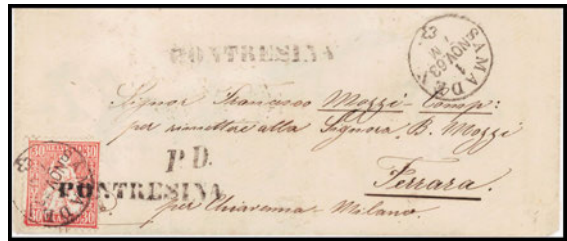 PONTRESINA
SAMADEN
1 NOV. 63
N
Signor Francesco Mozzi - Comp:
per rimettere alla Signora B. Mozzi
P.D.
Ferrara.
PONTRESINA
per Chiavenna - Milano.
30 30
30 30